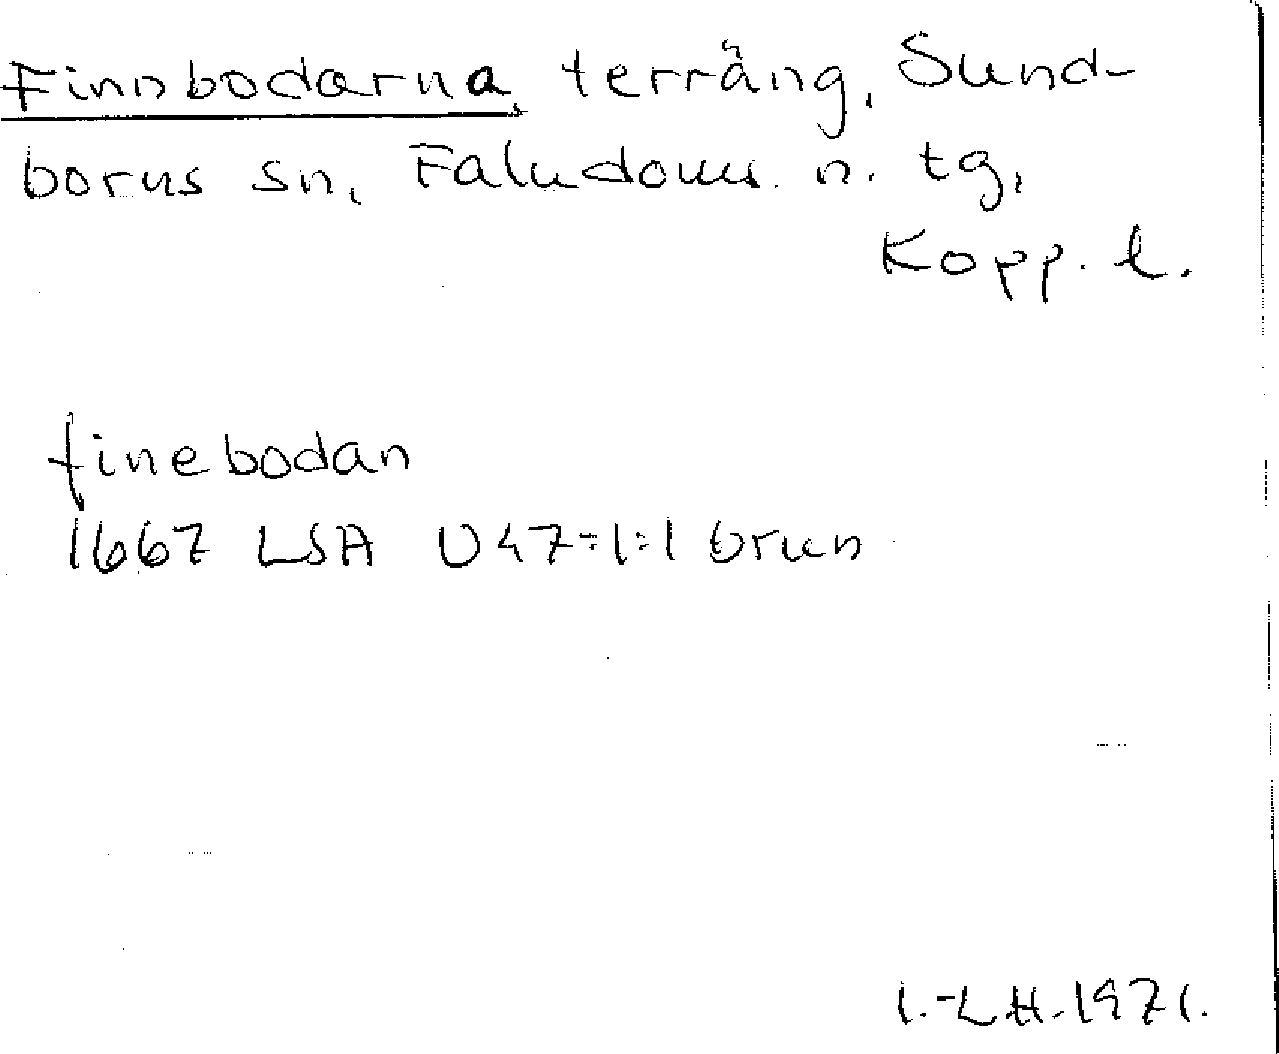 Finnbodarna, terräng, Sund-
borns sn, Faludoms. n. tg,
Kopp. l.
finebodan
1667 LSA U47-1:1 brun
I.-L.H. 1971.